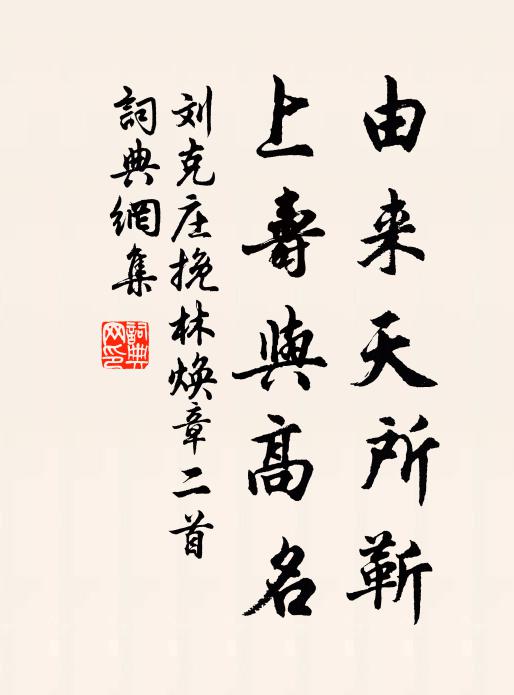 由来天所靳
上壽與高名
刘克庄挽林焕章二首
詞典網集
詞典网印